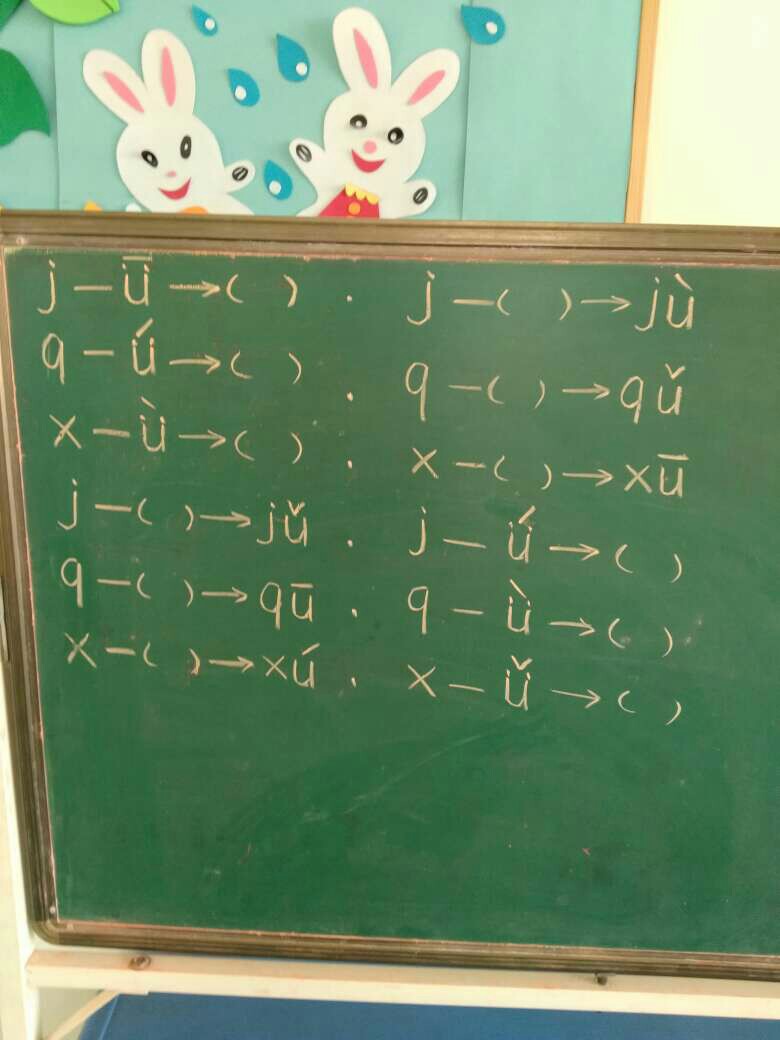 j — ǖ → ( ) . j — ( ) → jù
q — ǘ → ( ) . q — ( ) → qǔ
x — ǜ → ( ) . x — ( ) → xū
j — ( ) → jǔ . j — ǘ → ( )
q — ( ) → qū . q — ǜ → ( )
x — ( ) → xú . x — ǚ → ( )